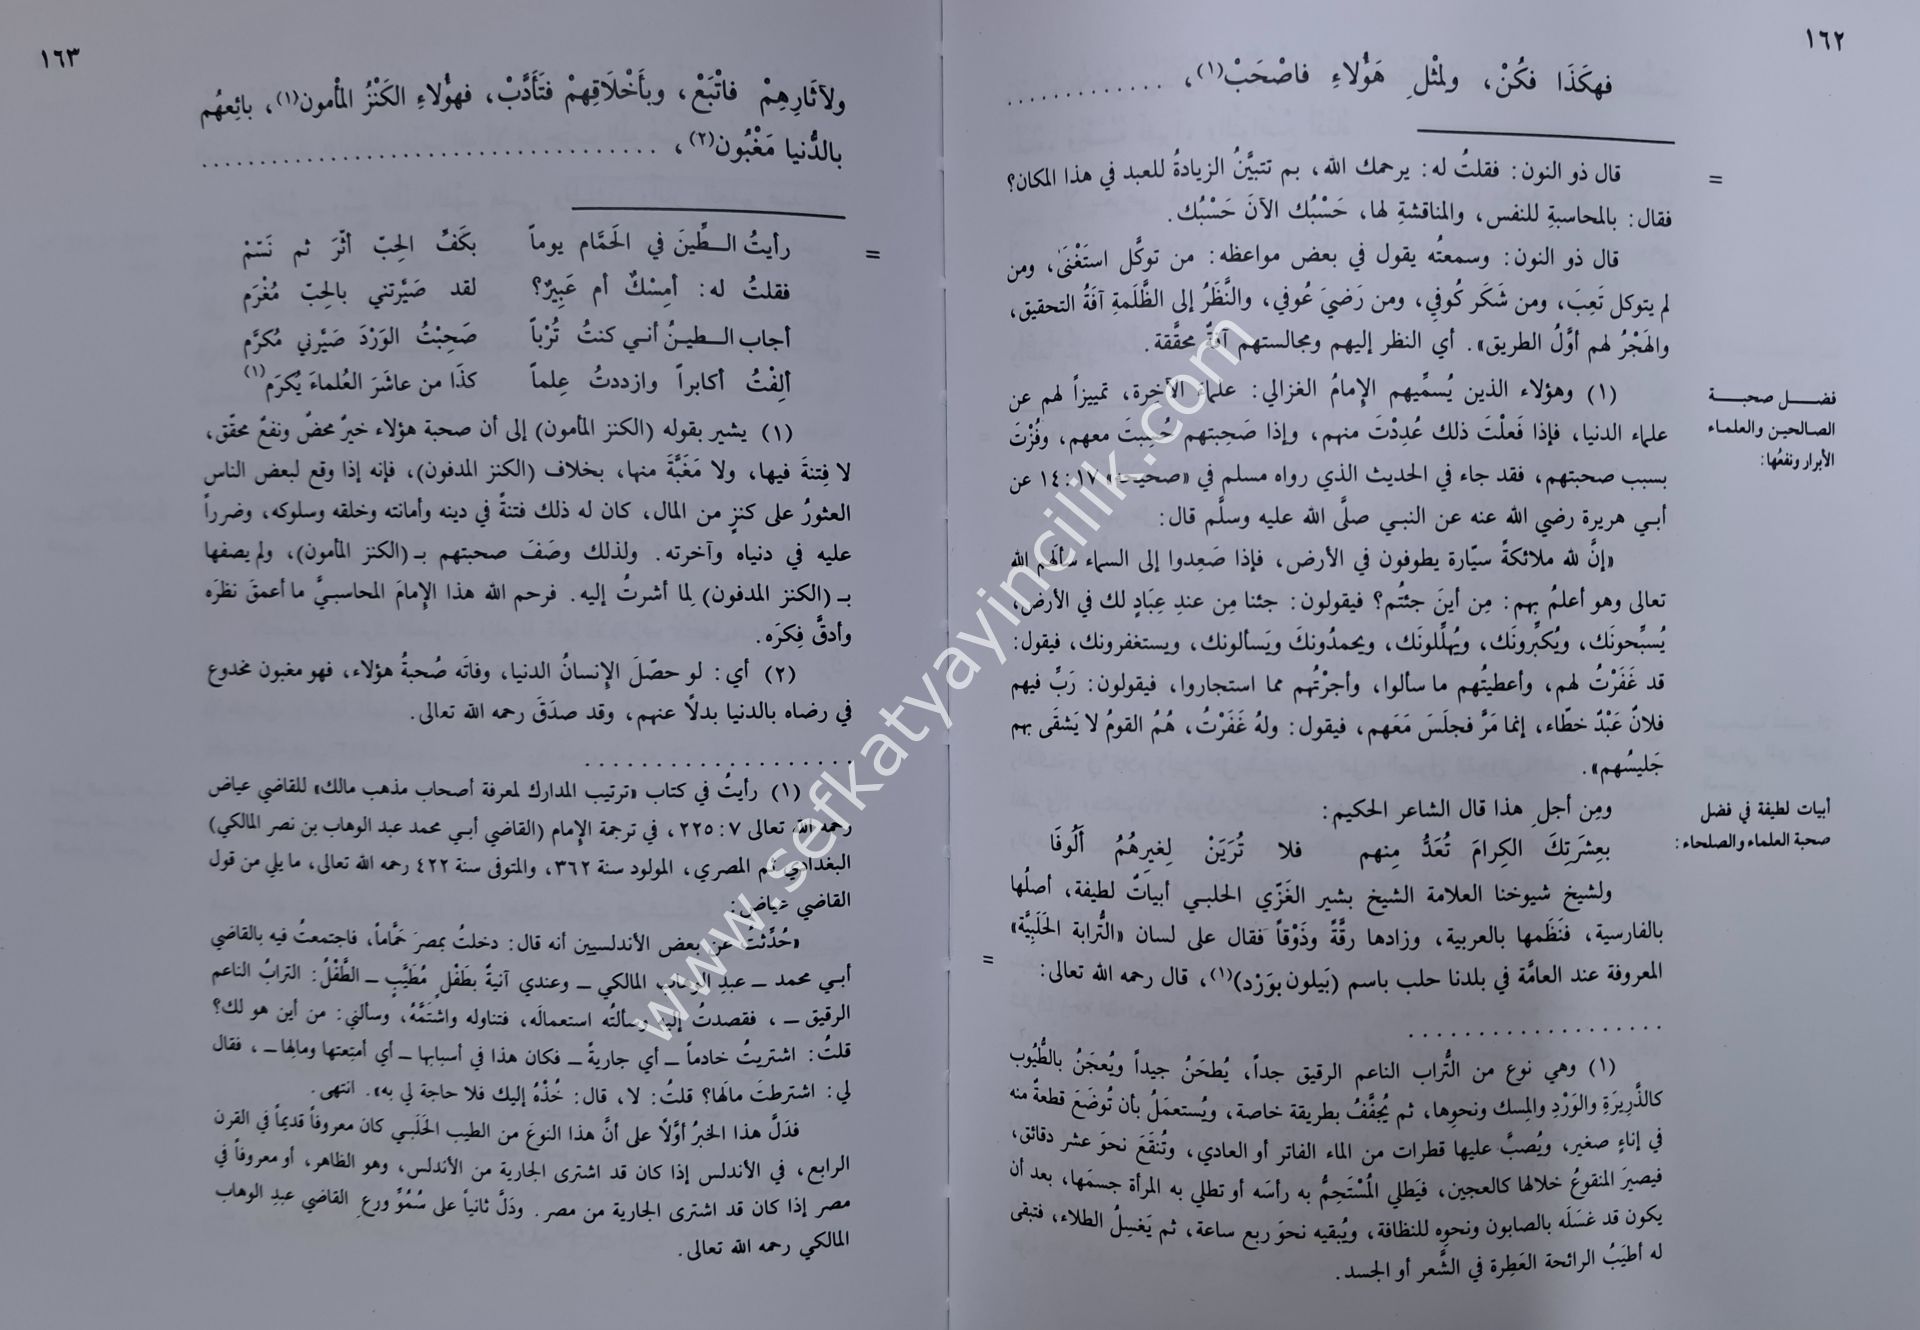 ١٦٢
فهكَذَا فكُنْ، ولمِثْلِ هَؤُلاءِ فاصْحَبْ(١)، . . . . . . . . . . . . .
= قال ذو النون: فقلتُ له: يرحمك الله، بم تتبيَّنُ الزيادةُ للعبد في هذا المكان؟
فقال: بالمحاسبةِ للنفس، والمناقشةِ لها، حَسْبُك الآنَ حَسْبُك.
قال ذو النون: وسمعتُه يقول في بعض مواعظه: من توكَّل استَغْنىٰ، ومن
لم يتوكل تَعِبَ، ومن شَكَر كُوفي، ومن رَضيَ عُوفي، والنَّظَرُ إلى الظَّلَمةِ آفةُ التحقيق،
والهَجْرُ لهم أوَّلُ الطريق». أي النظر إليهم ومجالستهم آفةٌ محقَّقة.
فضــل صحبــة
الصالحين والعلماء
الأبرار ونفعُها:
(١) وهؤلاء الذين يُسمِّيهم الإمامُ الغزالي: علماءَ الآخِرة، تمييزاً لهم عن
علماء الدنيا، فإذا فَعلْتَ ذلك عُدِدْتَ منهم، وإذا صَحِبتهم حُسِبتَ معهم، وفُزْتَ
بسبب صحبتهم، فقد جاء في الحديث الذي رواه مسلم في «صحيحه» ١٧:١٤ عن
أبي هريرة رضي الله عنه عن النبي صلَّى الله عليه وسلَّم قال:
«إنَّ لله ملائكةً سيّارة يطوفون في الأرض، فإذا صَعِدوا إلى السماء سألَهم الله
تعالى وهو أعلمُ بهم: مِن أينَ جئتُم؟ فيقولون: جئنا مِن عندِ عِبَادٍ لك في الأرض،
يُسبِّحونَك، ويُكبِّرونَك، ويُهلِّلونَك، ويحمدُونكَ ويَسألونك، ويستغفرونك، فيقول:
قد غَفَرْتُ لهم، وأعطيتُهم ما سألوا، وأجرْتُهم مما استجاروا، فيقولون: رَبِّ فيهم
فلانٌ عَبْدٌ خطّاء، إنما مَرَّ فجلَسَ مَعَهم، فيقول: ولهُ غَفَرْتُ، هُمُ القومُ لا يَشقَى بهم
جَليسُهم».
أبيات لطيفة في فضل
صحبة العلماء والصلحاء:
ومِن أجلِ هذا قال الشاعر الحكيم:
بعِشرَتِكَ الكِرامَ تُعَدُّ مِنهم فلا تُرَيَنْ لِغيرِهُمُ أَلُوفَا
ولشيخ شيوخنا العلامة الشيخ بشير الغَزّي الحلبي أبياتٌ لطيفة، أصلُها
بالفارسية، فنَظَمها بالعربية، وزادها رِقَّةً وذَوْقاً فقال على لسان «التُّرابة الحَلَبيَّة»
المعروفة عند العامَّة في بلدنا حلب باسم (بَيلون بوَرْد)(١)، قال رحمه الله تعالى: =
. . . . . . . . . . . . . . . . . . .
(١) وهي نوع من التُّراب الناعم الرقيق جداً، يُطحَنُ جيداً ويُعجَنُ بالطُّيُوب
كالذَّرِيرَةِ والوَرْدِ والمِسك ونحوِها، ثم يُجفَّفُ بطريقة خاصة، ويُستعمَلُ بأن تُوضَعَ قطعةٌ منه
في إناءٍ صغير، ويُصبَّ عليها قطرات من الماء الفاتر أو العادي، وتُنقَعَ نحوَ عشر دقائق،
فيصيرَ المنقوعُ خلالها كالعجين، فيَطلي المُسْتَحِمُّ به رأسَه أو تطلي به المرأة جسمَها، بعد أن
يكون قد غسَلَه بالصابون ونحوِه للنظافة، ويُبقيه نحوَ ربع ساعة، ثم يَغسِلُ الطلاء، فتبقى
له أطيَبُ الرائحة العَطِرة في الشَّعر أو الجسد.
١٦٣
ولآثارِهِمْ فاتْبَعْ، وبأَخْلَاقِهِمْ فتَأَدَّبْ، فهؤُلاءِ الكَنْزُ المأْمون(١)، بائِعهُم
بالدُّنيا مَغْبُون(٢)، . . . . . . . . . . . . . . . . . . . . . . . . . . . . . . . .
= رأيتُ الـطِّينَ في الحَمَّام يوماً بكَفِّ الحِبّ أثّرَ ثم نَسّمْ
فقلتُ له: أمِسْكٌ أم عَبِيرٌ؟ لقد صَيَّرتني بالحِبّ مُغْرَم
أجاب الـطينُ أني كنتُ تُرْباً صَحِبْتُ الوَرْدَ صَيَّرني مُكرَّم
ألِفْتُ أكابراً وازددتُ عِلماً كذَا من عاشَرَ العُلماءَ يُكرَم(١)
(١) يشير بقوله (الكنز المأمون) إلى أن صحبة هؤلاء خيرٌ محضٌ ونفعٌ محقّق،
لا فِتنةَ فيها، ولا مَغَبَّةَ منها، بخلاف (الكنز المدفون)، فإنه إذا وقع لبعض الناس
العثورُ على كنزٍ من المال، كان له ذلك فتنةً في دينه وأمانته وخلقه وسلوكه، وضرراً
عليه في دنياه وآخرته. ولذلك وصَفَ صحبتهم بـ (الكنز المأمون)، ولم يصفها
بـ (الكنز المدفون) لِما أشرتُ إليه. فرحم الله هذا الإمامَ المحاسبيَّ ما أعمقَ نظَرَه
وأدقَّ فِكرَه.
(٢) أي: لو حصّلَ الإنسانُ الدنيا، وفاتَه صُحبةُ هؤلاء، فهو مغبون مخدوع
في رضاه بالدنيا بدلًا عنهم، وقد صدَقَ رحمه الله تعالى.
. . . . . . . . . . . . . . . . . . .
(١) رأيتُ في كتاب «ترتيب المدارك لمعرفة أصحاب مذهب مالك» للقاضي عياض
رحمه الله تعالى ٧:٢٢٥، في ترجمة الإمام (القاضي أبي محمد عبد الوهاب بن نصر المالكي)
البغدادي ثم المصري، المولود سنة ٣٦٢، والمتوفى سنة ٤٢٢ رحمه الله تعالى، ما يلي من قول
القاضي عياض:
«حُدِّثتُ عن بعض الأندلسيين أنه قال: دخلتُ بمصرَ حَمَّاماً، فاجتمعتُ فيه بالقاضي
أبي محمد ــ عبدِ الوهاب المالكي ــ وعندي آنيةٌ بطَفْلٍ مُطَيَّبٍ ــ الطَّفْلُ: الترابُ الناعم
الرقيق ــ، فقصدتُ إليه وسألتُه استعمالَه، فتناوله واشتَمَّهُ، وسألني: من أين هو لك؟
قلتُ: اشتريتُ خادماً ــ أي جاريةً ــ فكان هذا في أسبابها ــ أي أمتِعتها ومالِها ــ، فقال
لي: اشترطتَ مالَها؟ قلتُ: لا، قال: خُذْهُ إليك فلا حاجة لي به». انتهى.
فدَلَّ هذا الخبرُ أوَّلاً على أنَّ هذا النوعَ من الطيب الحَلَبي كان معروفاً قديماً في القرن
الرابع، في الأندلس إذا كان قد اشترى الجارية من الأندلس، وهو الظاهر، أو معروفاً في
مصر إذا كان قد اشترى الجارية من مصر. ودَلَّ ثانياً على سُمُوِّ ورعِ القاضي عبدِ الوهاب
المالكي رحمه الله تعالى.
www.sefkatyayincilik.com